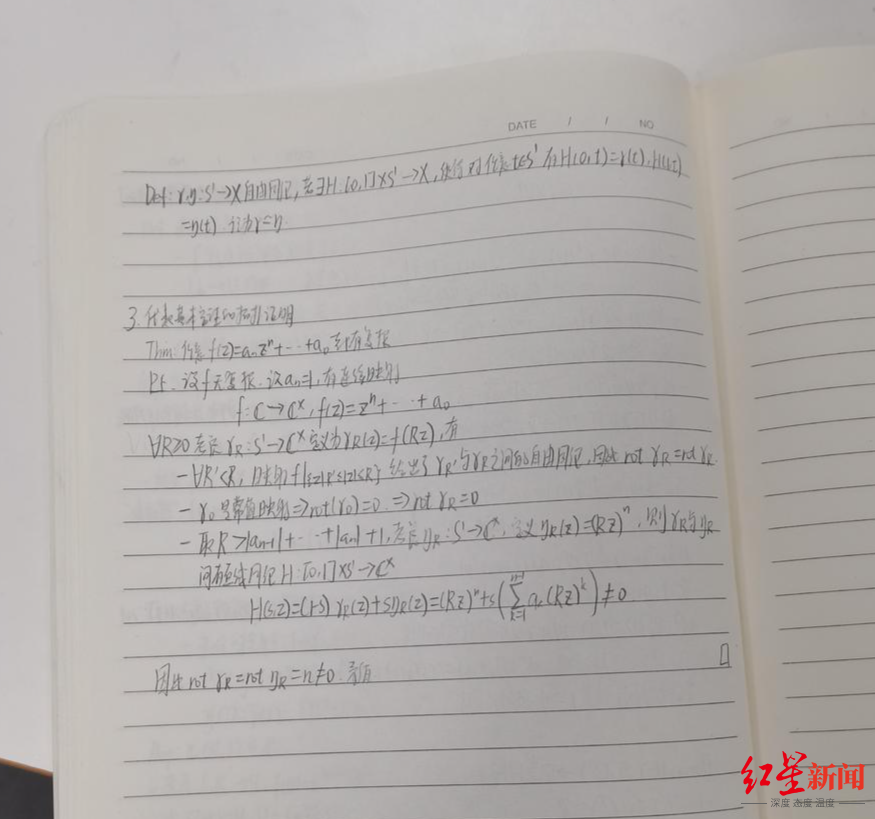 DATE / / NO
Def: γ,η: S¹→X自由同伦, 若∃H: [0,1]×S¹→X, 使得对任意t∈S¹有H(0,t)=γ(t), H(1,t)
=η(t). 记为γ≃η.
3. 代数基本定理的拓扑证明
Thm: 任意f(z)=aₙzⁿ+…+a₀都有复根
Pf. 设f无复根. 设aₙ=1, 有连续映射
f: C→Cˣ, f(z)=zⁿ+…+a₀
∀R≥0考虑γR: S¹→Cˣ定义为γR(z)=f(Rz), 有
— ∀R'<R, 映射f|{z|R'≤|z|≤R}给出了γR'与γR之间的自由同伦, 因此rot γR'=rot γR.
— γ₀是常值映射⇒rot(γ₀)=0. ⇒rot γR=0
— 取R>|aₙ₋₁|+…+|a₀|+1, 考虑ηR: S¹→Cˣ, 定义ηR(z)=(Rz)ⁿ, 则γR与ηR
间有直线同伦H: [0,1]×S¹→Cˣ
H(s,z)=(1-s)γR(z)+sηR(z)=(Rz)ⁿ+s(∑ₖ₌₁ⁿ⁻¹aₖ(Rz)ᵏ)≠0
因此rot γR=rot ηR=n≠0. 矛盾 □
红星新闻
深度 态度 温度